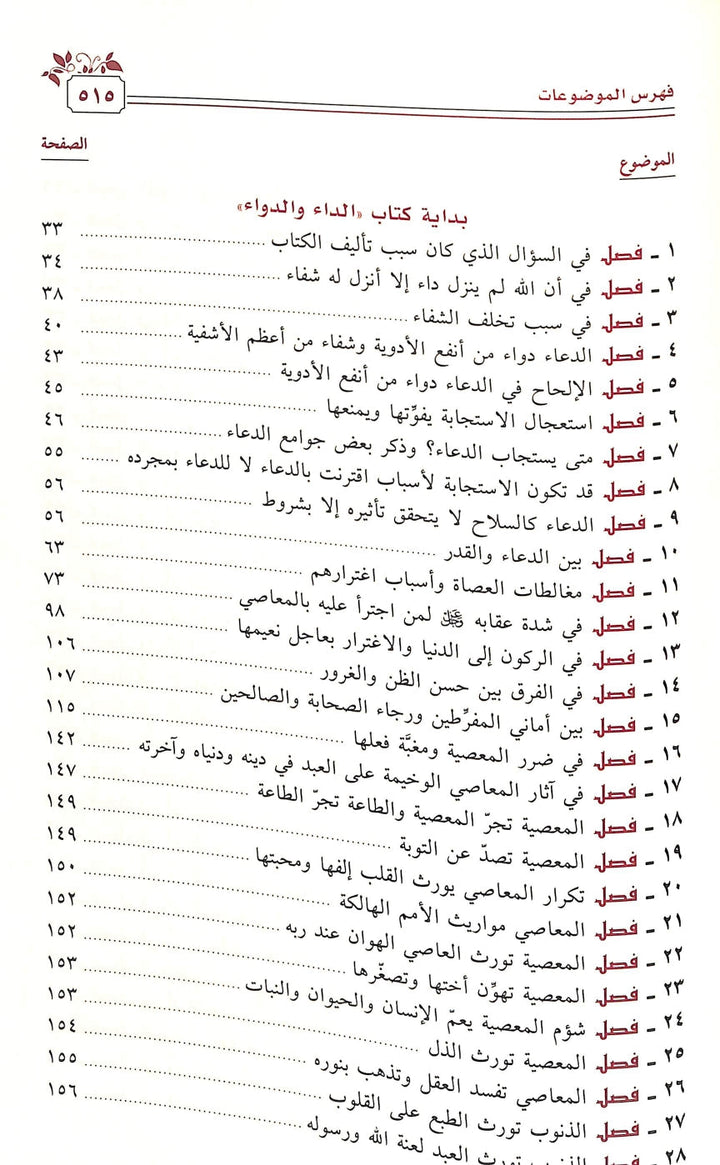 فهرس الموضوعات ٥١٥
الموضوع الصفحة
بداية كتاب «الداء والدواء»
١ - فصل في السؤال الذي كان سبب تأليف الكتاب ٣٣
٢ - فصل في أن الله لم ينزل داء إلا أنزل له شفاء ٣٤
٣ - فصل في سبب تخلف الشفاء ٣٨
٤ - فصل الدعاء دواء من أنفع الأدوية وشفاء من أعظم الأشفية ٤٠
٥ - فصل الإلحاح في الدعاء دواء من أنفع الأدوية ٤٣
٦ - فصل استعجال الاستجابة يفوّتها ويمنعها ٤٥
٧ - فصل متى يستجاب الدعاء؟ وذكر بعض جوامع الدعاء ٤٦
٨ - فصل قد تكون الاستجابة لأسباب اقترنت بالدعاء لا للدعاء بمجرده ٥٥
٩ - فصل الدعاء كالسلاح لا يتحقق تأثيره إلا بشروط ٥٦
١٠ - فصل بين الدعاء والقدر ٥٦
١١ - فصل مغالطات العصاة وأسباب اغترارهم ٦٣
١٢ - فصل في شدة عقابه ﷻ لمن اجترأ عليه بالمعاصي ٧٣
١٣ - فصل في الركون إلى الدنيا والاغترار بعاجل نعيمها ٩٨
١٤ - فصل في الفرق بين حسن الظن والغرور ١٠٦
١٥ - فصل بين أماني المفرِّطين ورجاء الصحابة والصالحين ١٠٧
١٦ - فصل في ضرر المعصية ومغبَّة فعلها ١١٥
١٧ - فصل في آثار المعاصي الوخيمة على العبد في دينه ودنياه وآخرته ١٤٢
١٨ - فصل المعصية تجرّ المعصية والطاعة تجرّ الطاعة ١٤٧
١٩ - فصل المعصية تصدّ عن التوبة ١٤٩
٢٠ - فصل تكرار المعاصي يورث القلب إلفها ومحبتها ١٤٩
٢١ - فصل المعاصي مواريث الأمم الهالكة ١٥٠
٢٢ - فصل المعصية تورث العاصي الهوان عند ربه ١٥٢
٢٣ - فصل المعصية تهوِّن أختها وتصغّرها ١٥٢
٢٤ - فصل شؤم المعصية يعمّ الإنسان والحيوان والنبات ١٥٣
٢٥ - فصل المعصية تورث الذل ١٥٣
٢٦ - فصل المعاصي تفسد العقل وتذهب بنوره ١٥٤
٢٧ - فصل الذنوب تورث الطبع على القلوب ١٥٥
٢٨ - فصل الذنوب تورث العبد لعنة الله ورسوله ١٥٦